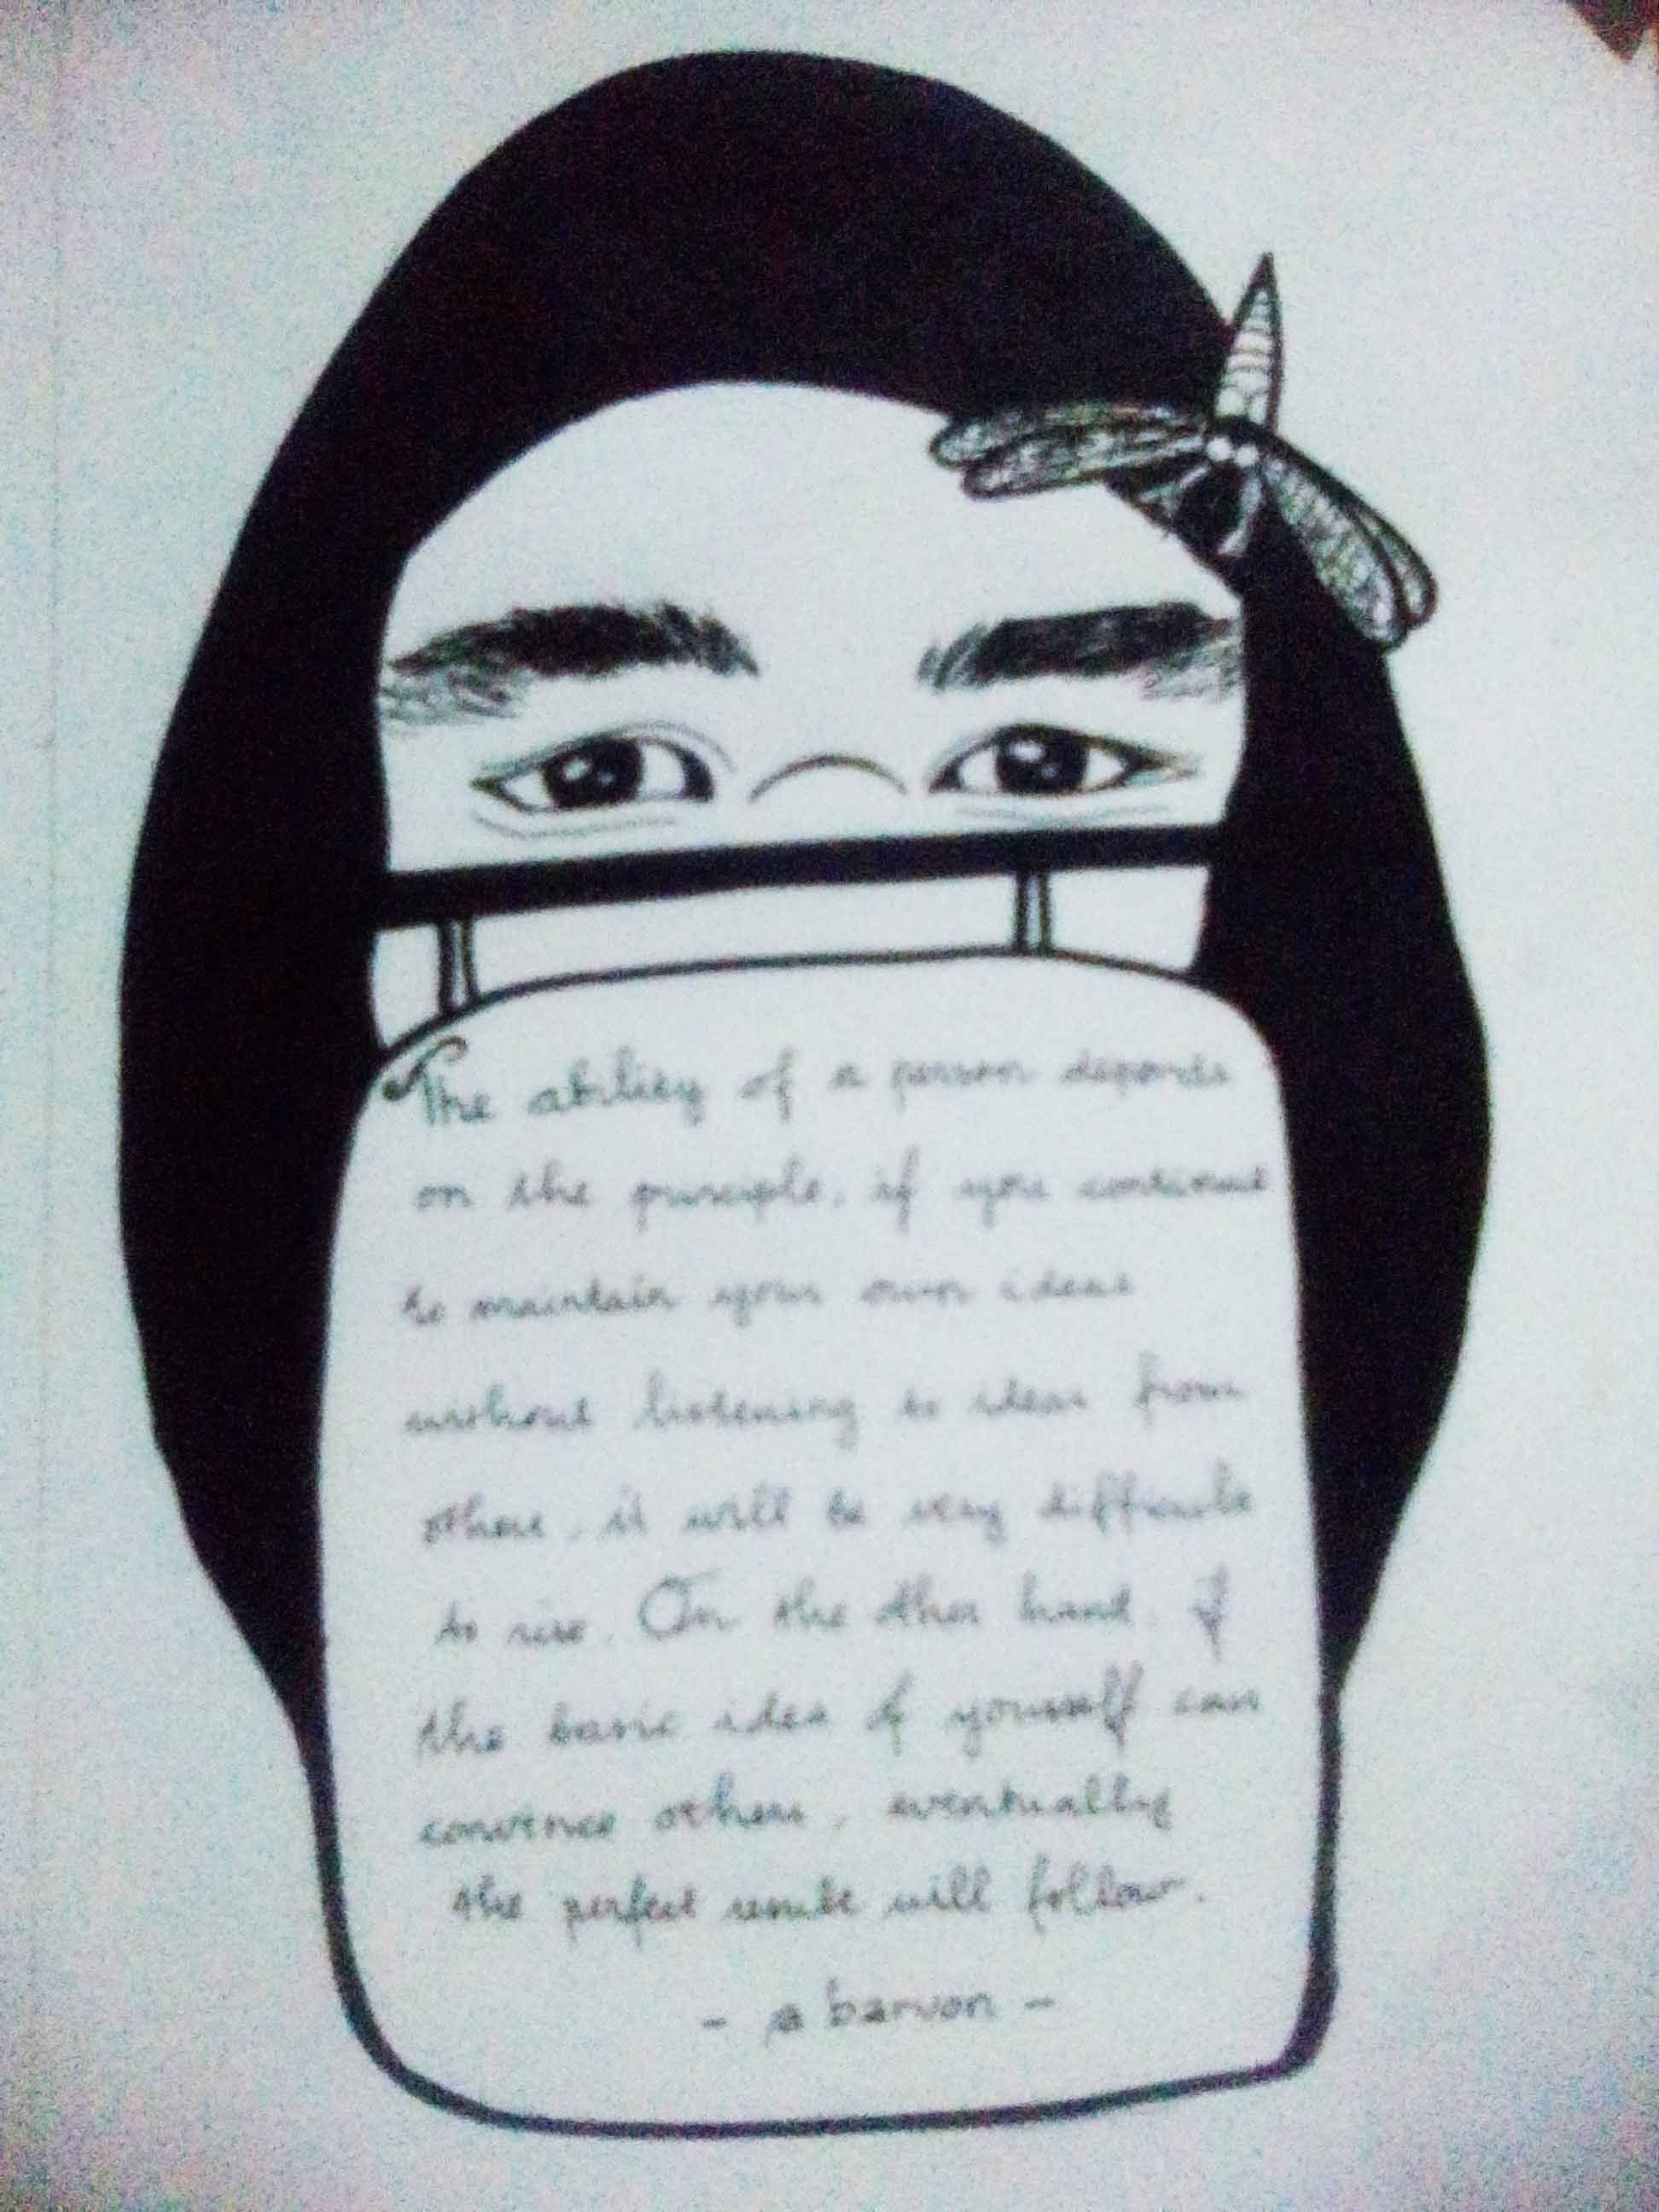 The ability of a person depends
on the principle, if you continue
to maintain your own ideas
without listening to ideas from
others, it will be very difficult
to rise. On the other hand, if
the basic idea of yourself can
convince others, eventually
the perfect result will follow.
- a barvon -